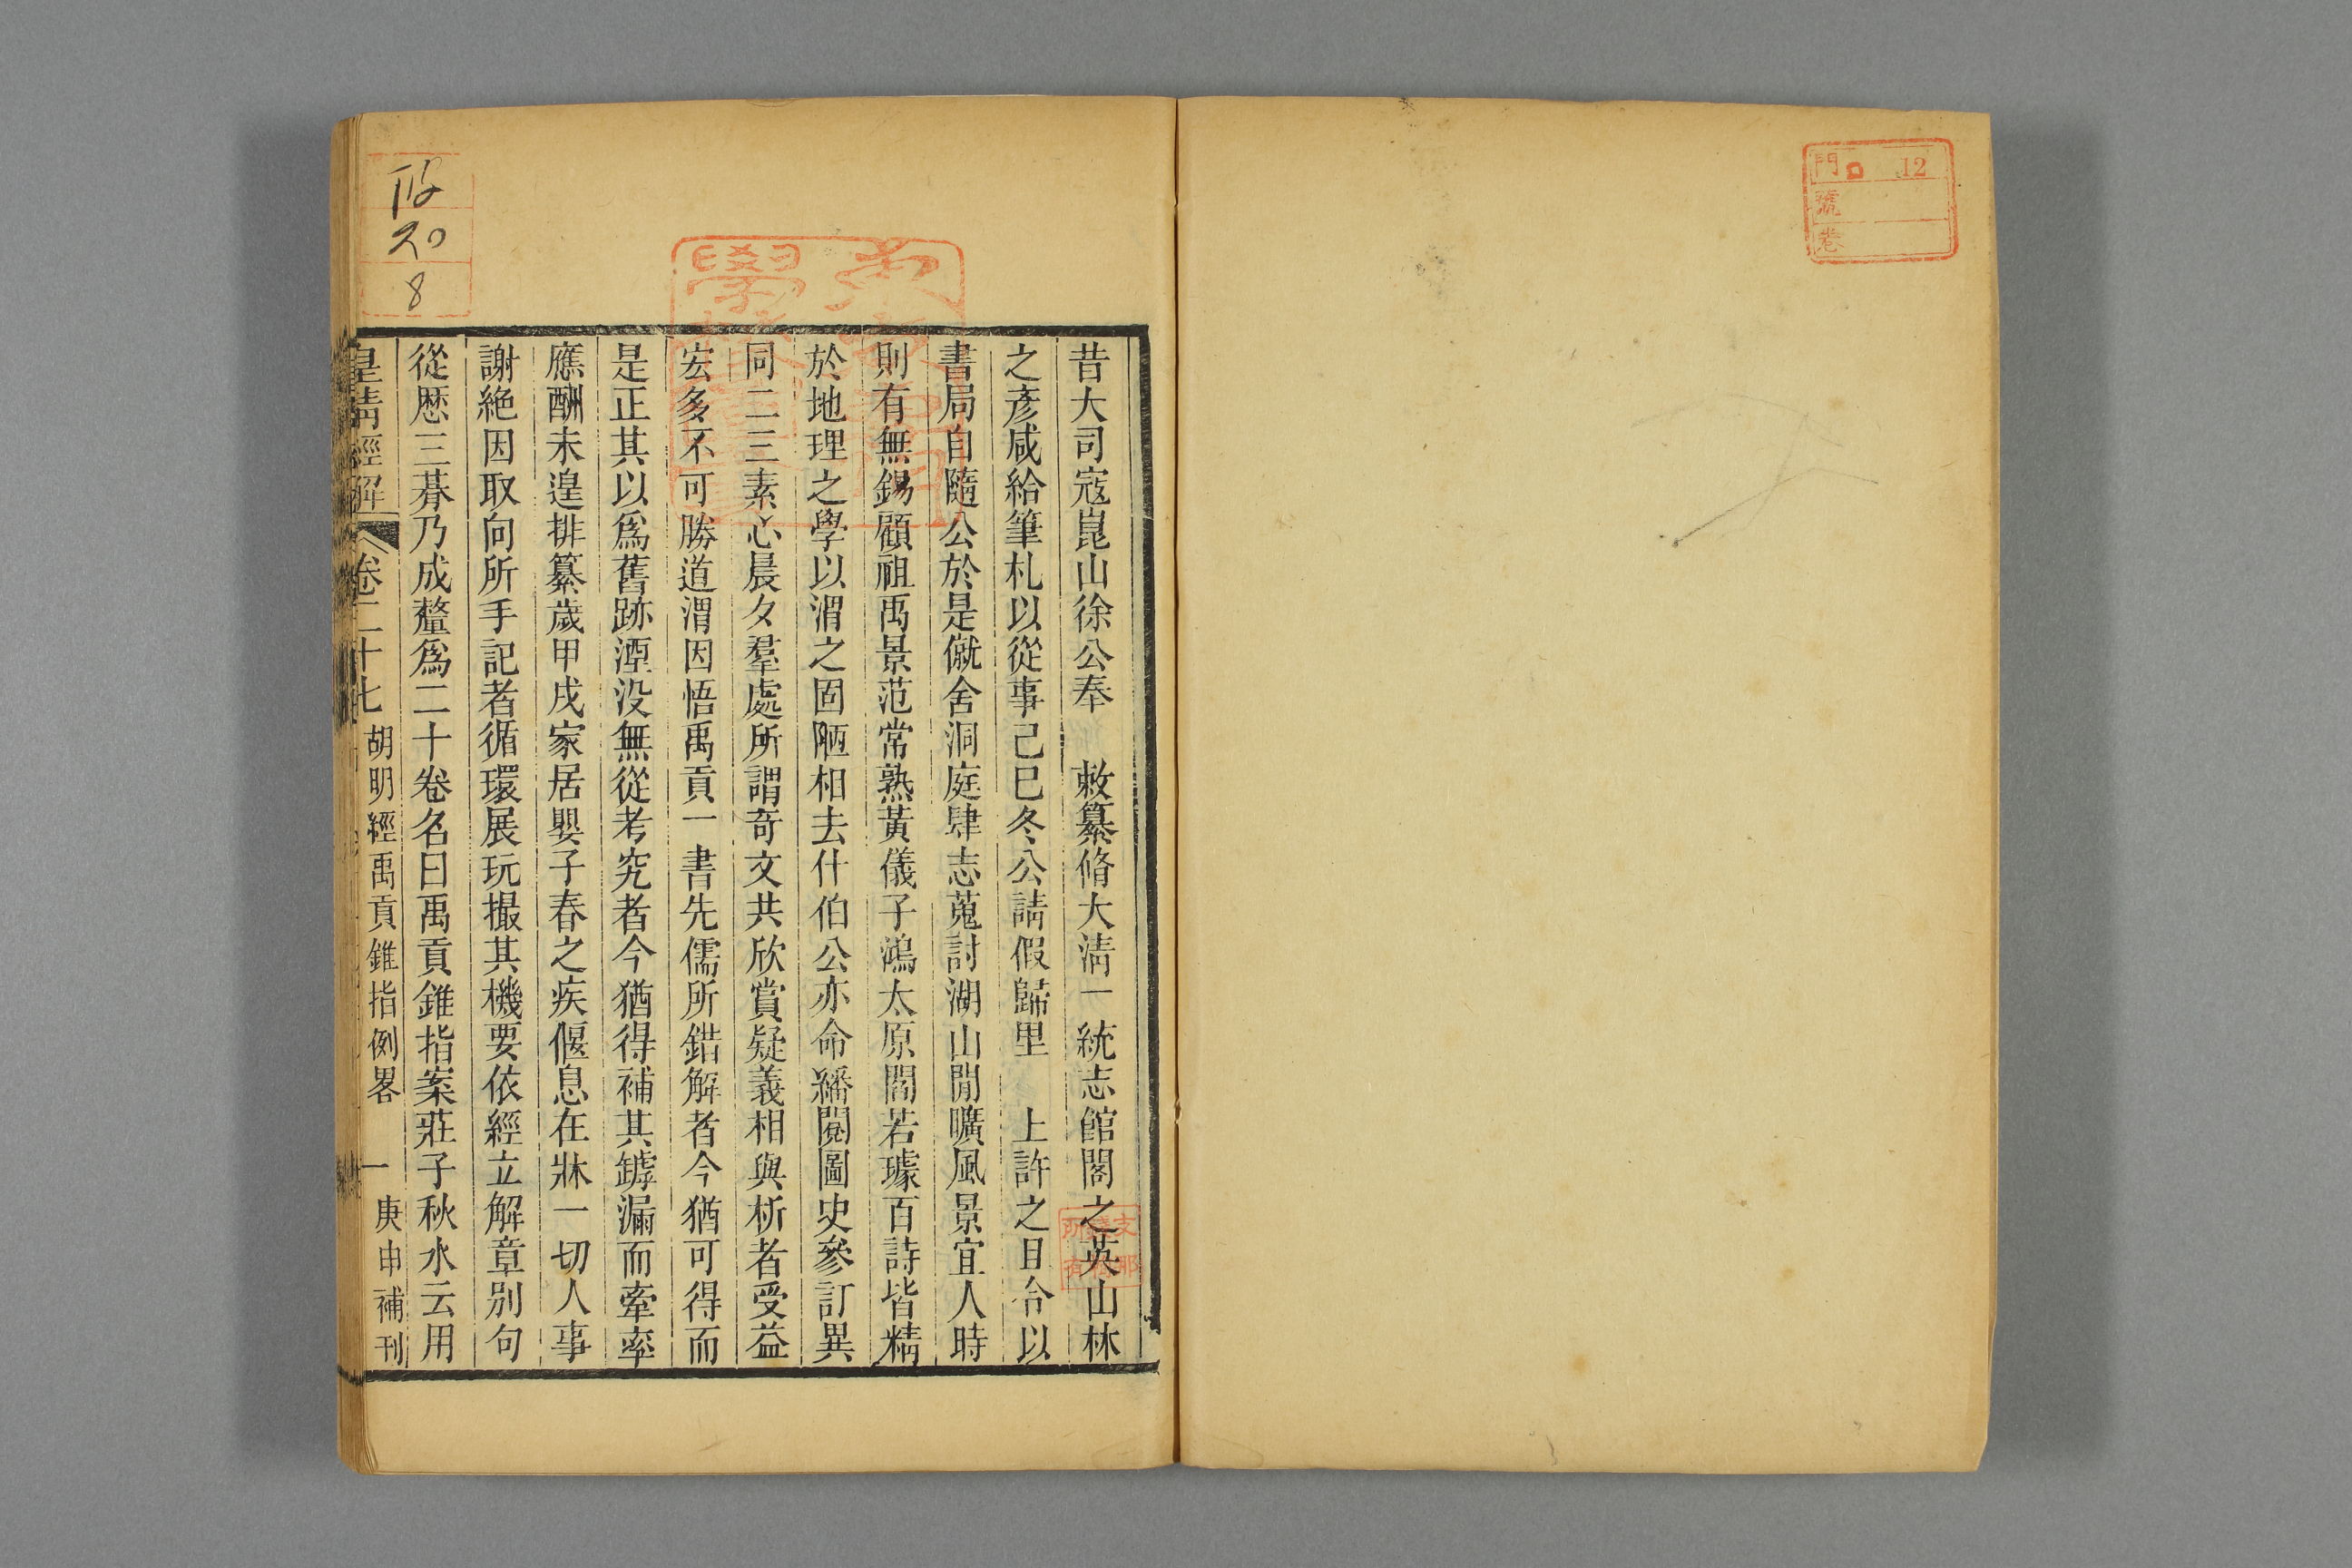 門 ロ 12
號
卷
昔大司寇崑山徐公奉 敕纂脩大淸一統志館閣之英山林
之彥咸給筆札以從事己巳冬公請假歸里 上許之且合以
書局自隨公於是僦舍洞庭肆志蒐討湖山閒曠風景宜人時
則有無錫顧祖禹景范常熟黃儀子鴻太原閻若璩百詩皆精
於地理之學以渭之固陋相去什伯公亦命繙閱圖史參訂異
同二三素心晨夕羣處所謂奇文共欣賞疑義相與析者受益
宏多不可勝道渭因悟禹貢一書先儒所錯解者今猶可得而
是正其以爲舊跡湮没無從考究者今猶得補其罅漏而牽率
應酬未遑排纂歲甲戌家居嬰子春之疾偃息在牀一切人事
謝絶因取向所手記者循環展玩撮其機要依經立解章別句
從厯三朞乃成釐爲二十卷名曰禹貢錐指案莊子秋水云用
皇淸經解 卷二十七 胡明經禹貢錐指例畧 一 庚申補刊
20
8